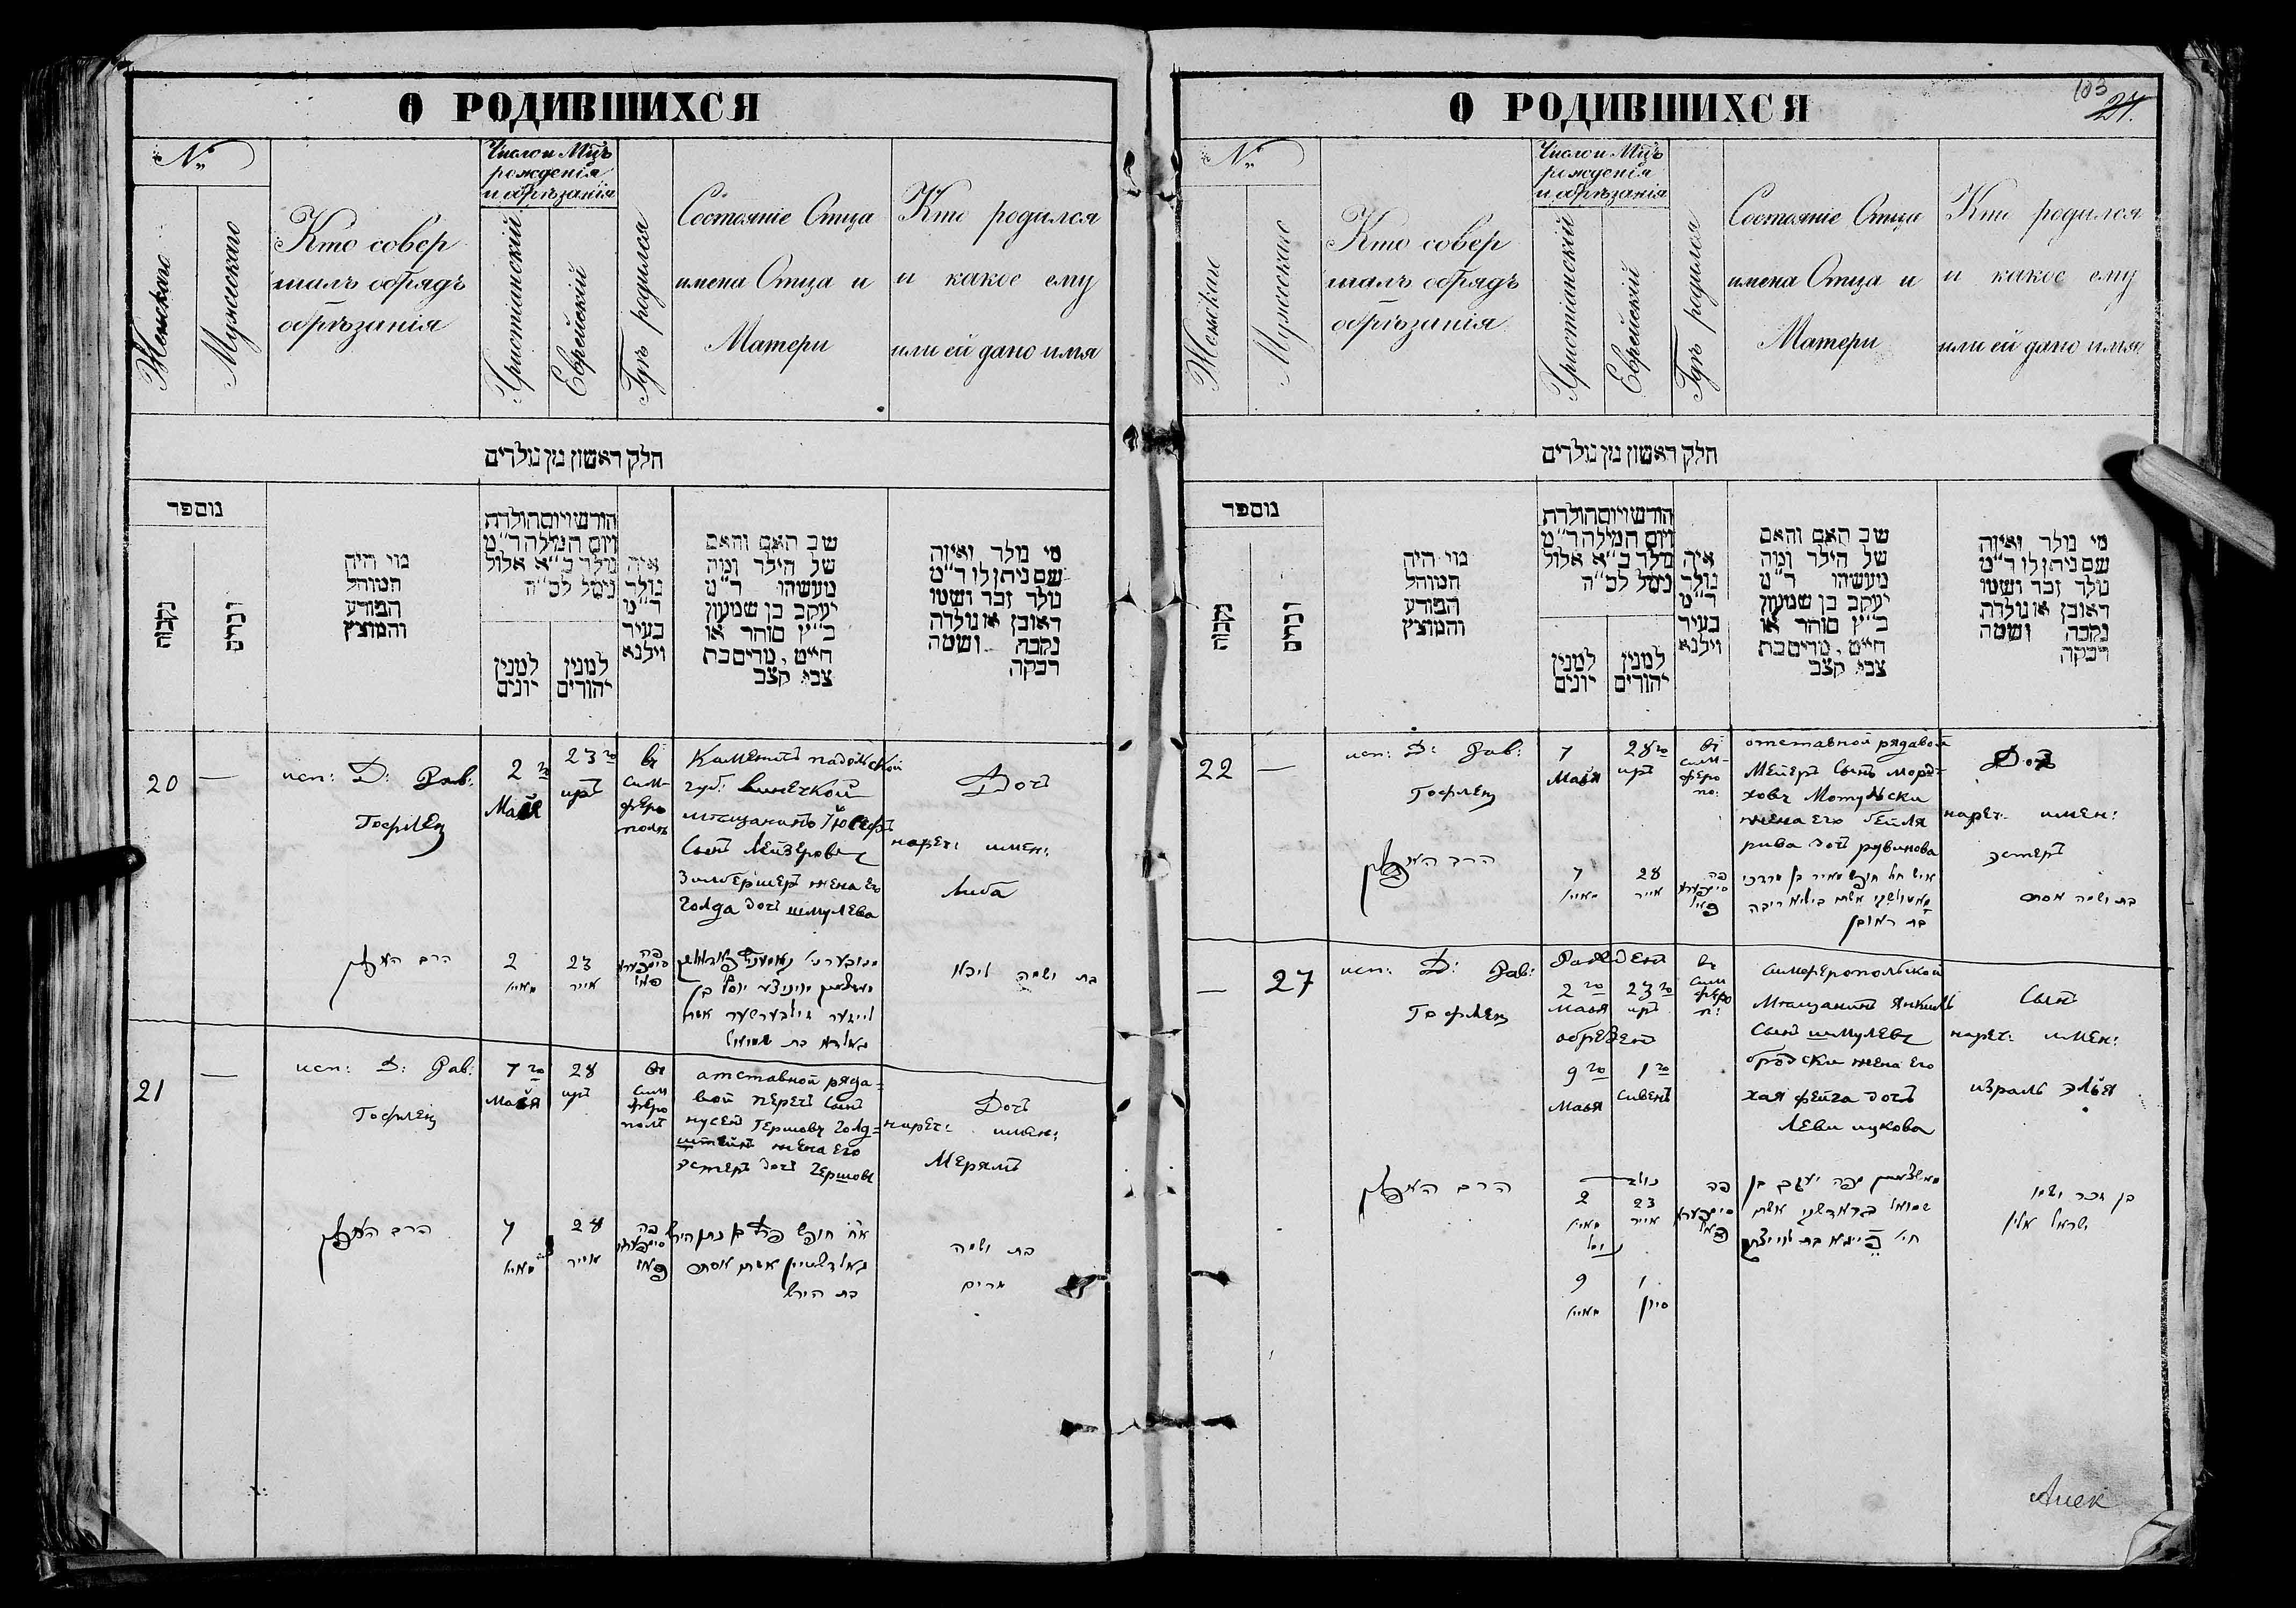 О РОДИВШИХСЯ
№
Женскаго
Мужескаго
Кто совер
шалъ обрядъ
обрѣзанія
Число и Мцъ
рожденія
и обрѣзанія
Христіанскій
Еврейскій
Гдѣ родился
Состояніе Отца
имена Отца и
Матери
Кто родился
и какое ему
или ей дано имя
חלק ראשון מן נולדים
נומפר
נקבות
זכרים
מי היה
המוהל
הפורע
והמוצץ
חודש ויום הולדת
ויום המילה ר״מ
נולד כ״א אלול
נימל לכ״ה
למנין
יונים
למנין
יהודים
איה
נולד
ר״מ
בעיר
וילנא
שב האם והאם
של הילד ומה
מעשהו ר״מ
יעקב בן שמעון
כ״ץ סוחר או
חייט, מרים בת
צבי קצב
מי נולד ואיזה
שם ניתן לו ר״מ
נולד זכר ושמו
ראובן או נולדה
נקבה ושמה
רבקה
20
—
исп: Д: Рав:
Гофлец
2го
Мая
23го
иръ
въ
сим-
феро
полъ
Каменитъ падольской
губ: винечкой
мѣщанинъ Иосефъ
Сынъ Лейзеровъ
Зильбершеръ жена ег
Голда дочъ шмулева
Дочъ
нареч: имен:
Либа
הרב
2
מאייא
23
אייר
פה
בת ושמה ליבא
בת שמואל
21
—
исп: Д: Рав:
Гофлец
7го
Мая
28
иръ
въ
сим
феро
полъ
атставной ряда-
вой перецъ сынъ
нусенъ Гершовъ Голд=
штейнъ жена его
Эстеръ дочъ Гершовъ
Дочъ
нареч: имен:
Мерямъ
הרב
7
מאייא
28
אייר
פה
גאלדשטיין אשתו אסתר
בת הירש
בת ושמה
מרים
О РОДИВШИХСЯ
103
27.
№
Женскаго
Мужескаго
Кто совер
шалъ обрядъ
обрѣзанія
Число и Мцъ
рожденія
и обрѣзанія
Христіанскій
Еврейскій
Гдѣ родился
Состояніе Отца
имена Отца и
Матери
Кто родился
и какое ему
или ей дано имя
חלק ראשון מן נולדים
נומפר
נקבות
זכרים
מי היה
המוהל
הפורע
והמוצץ
חודש ויום הולדת
ויום המילה ר״מ
נולד כ״א אלול
נימל לכ״ה
למנין
יונים
למנין
יהודים
איה
נולד
ר״מ
בעיר
וילנא
שב האם והאם
של הילד ומה
מעשהו ר״מ
יעקב בן שמעון
כ״ץ סוחר או
חייט, מרים בת
צבי קצב
מי נולד ואיזה
שם ניתן לו ר״מ
נולד זכר ושמו
ראובן או נולדה
נקבה ושמה
רבקה
22
—
исп: Д: Рав:
Гофлец
7
Мая
28го
иръ
въ
сим-
феро
по:
отставной рядавой
Мейеръ Сынъ морд-
ховъ Мотульски
жена его бейля
рива дочъ рувинова
Дочъ
нареч: имен:
эстеръ
הרב
7
מאייא
28
אייר
פה
בת ראובן
בת ושמה אסתר
—
27
исп: Д: Рав:
Гофлец
Раждент
2го
Мая
23го
иръ
обрезент
9го
Мая
1го
Сивенъ
въ
сим
феро
п:
симферопольской
Мѣщанинъ Янкиль
сынъ шмулевъ
бродски жена его
хая фейга дочъ
Леви ицкова
Сынъ
нареч: имен:
израль элья
הרב
נולד
2
מאייא
23
אייר
נימול
9
מאייא
1
סיון
פה
בן זכר ושמו
ישראל אליו
Алек